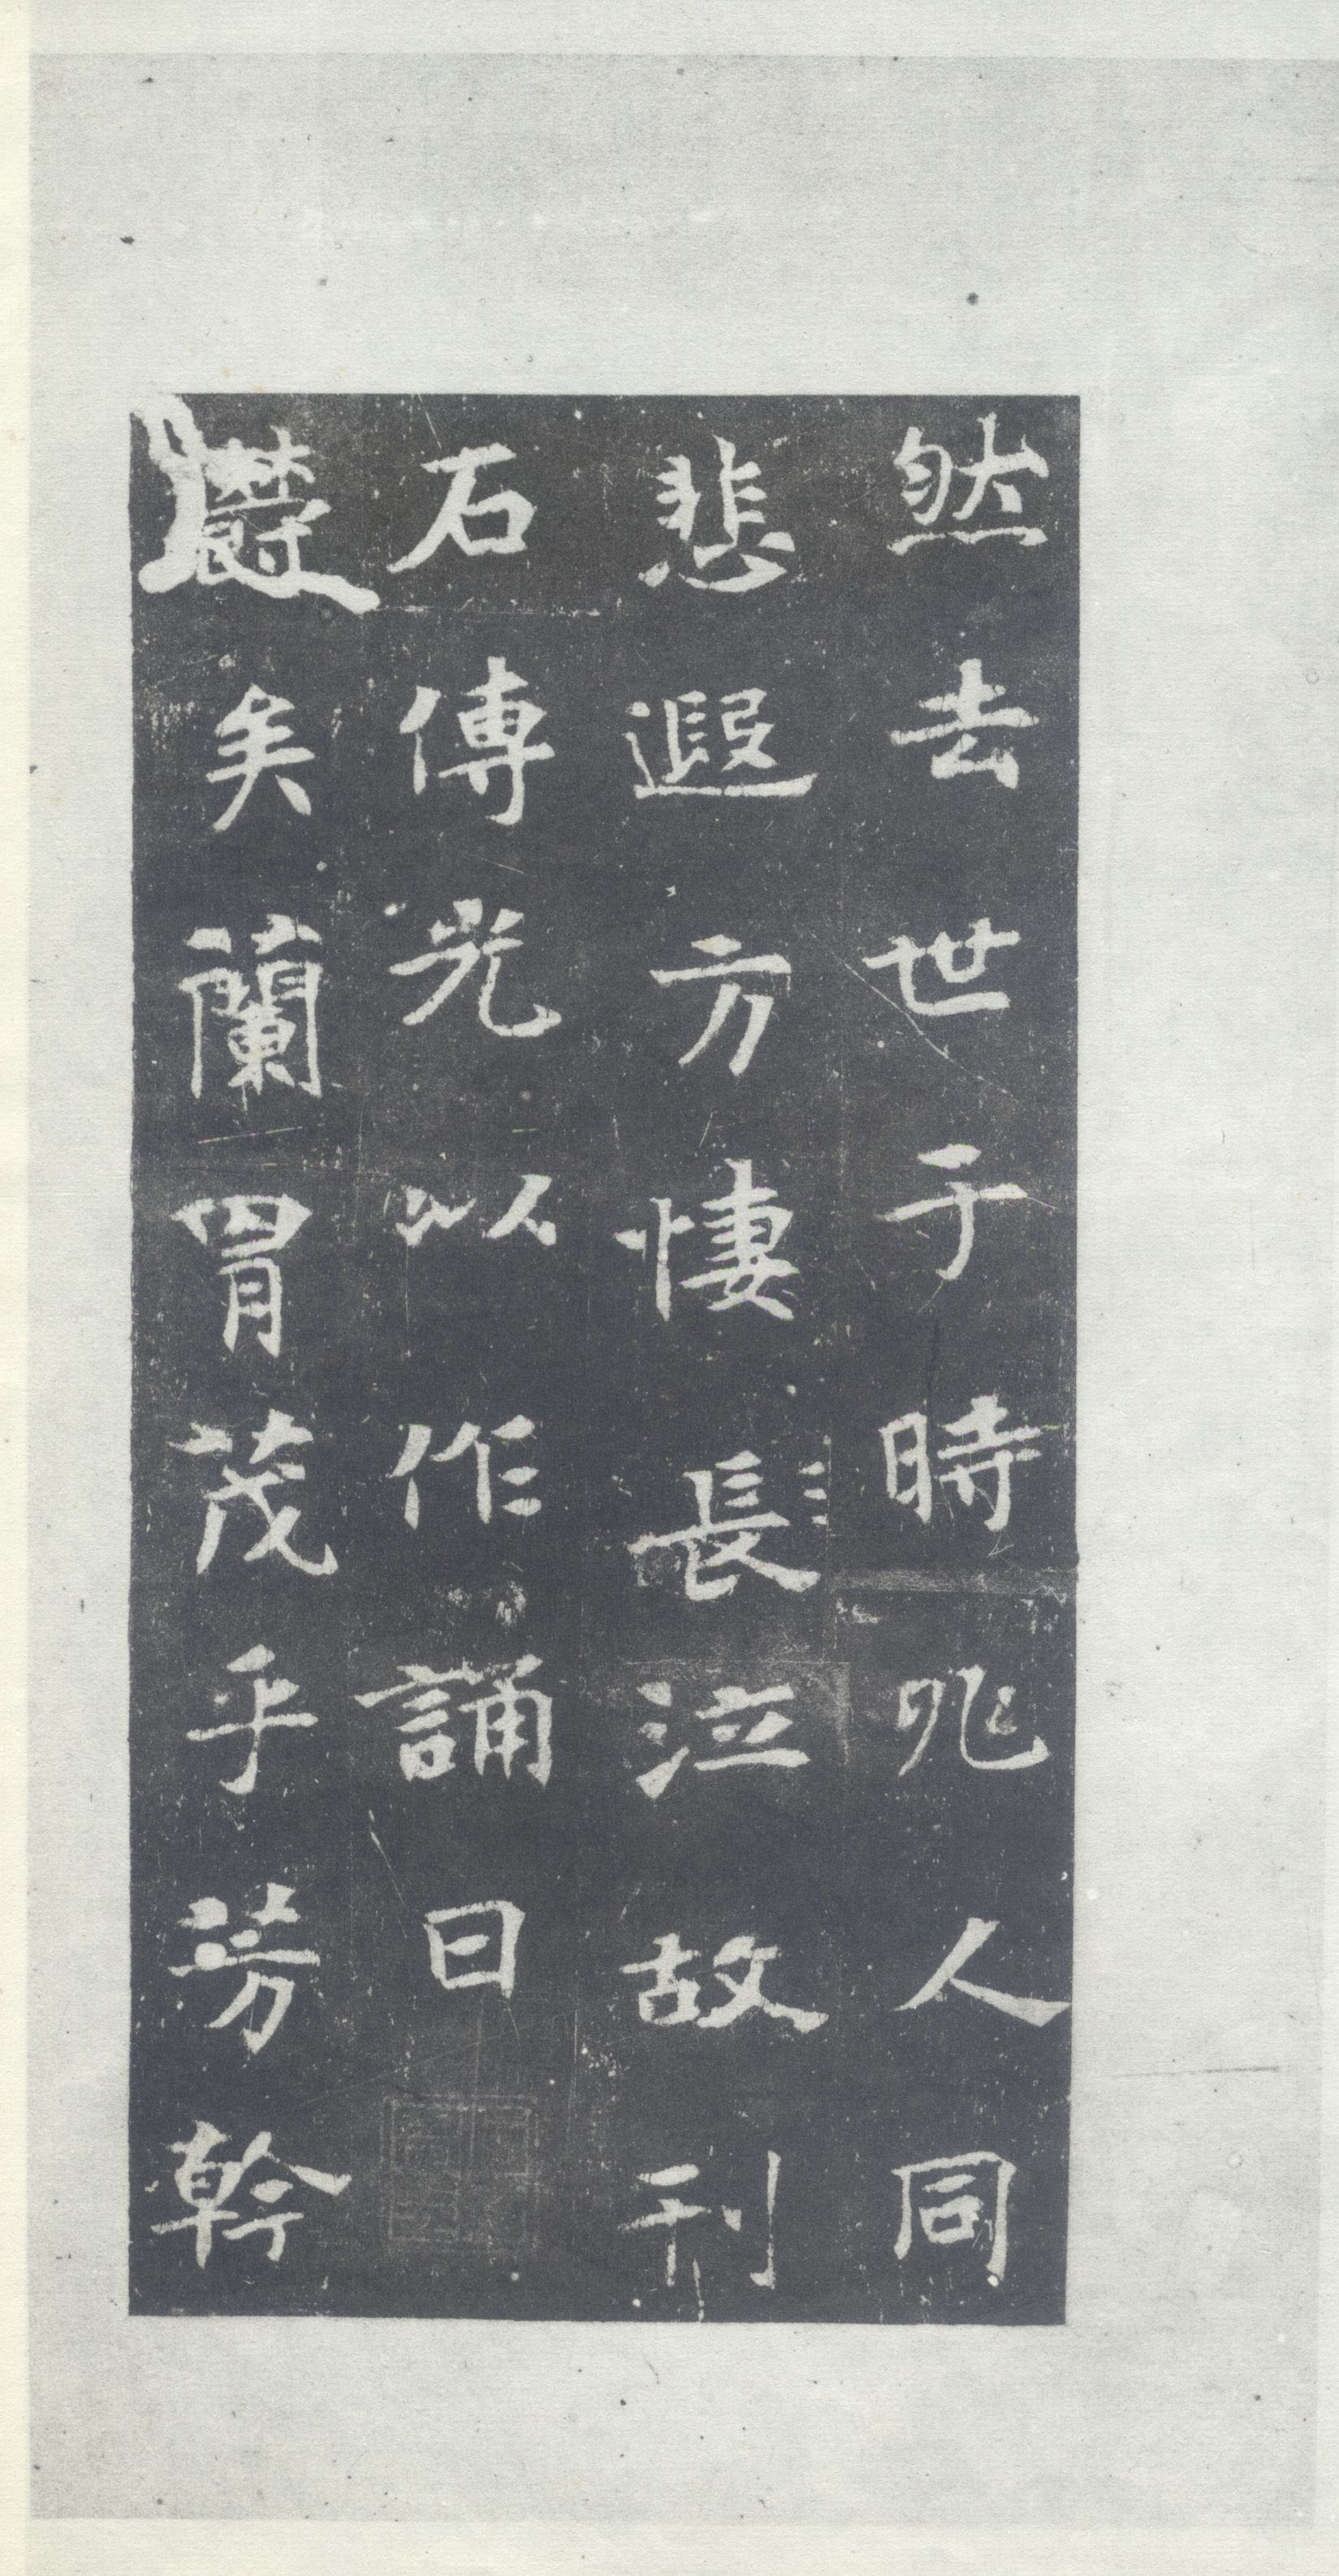 然去世于時兆人同
悲遐方悽長泣故刊
石傳光以作誦曰
鬱矣蘭胄茂乎芳幹